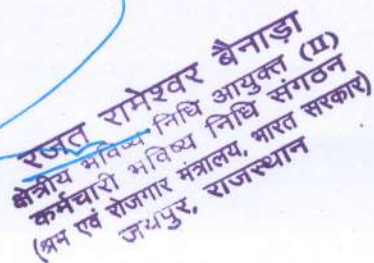 रजत रामेश्वर बैनाड़ा
क्षेत्रीय भविष्य निधि आयुक्त (II)
कर्मचारी भविष्य निधि संगठन
(श्रम एवं रोजगार मंत्रालय, भारत सरकार)
जयपुर, राजस्थान